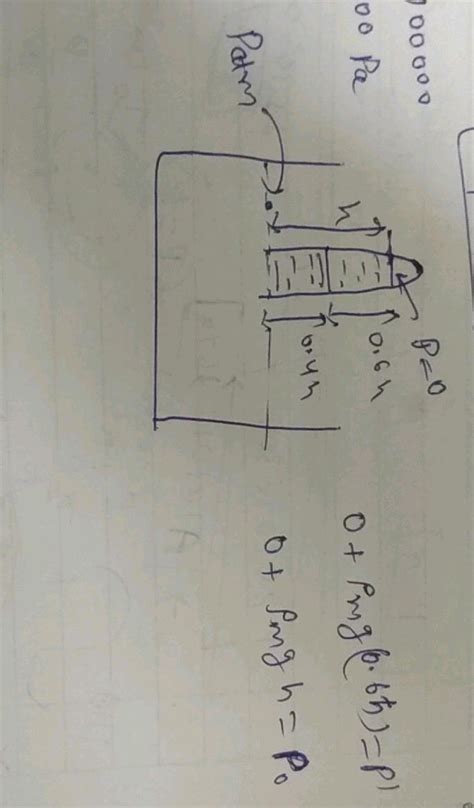 00000
00 Pa
Patm
h
P=0
0.6h
0.4h
0 + ρmg(0.6h) = P'
0 + ρmgh = P₀